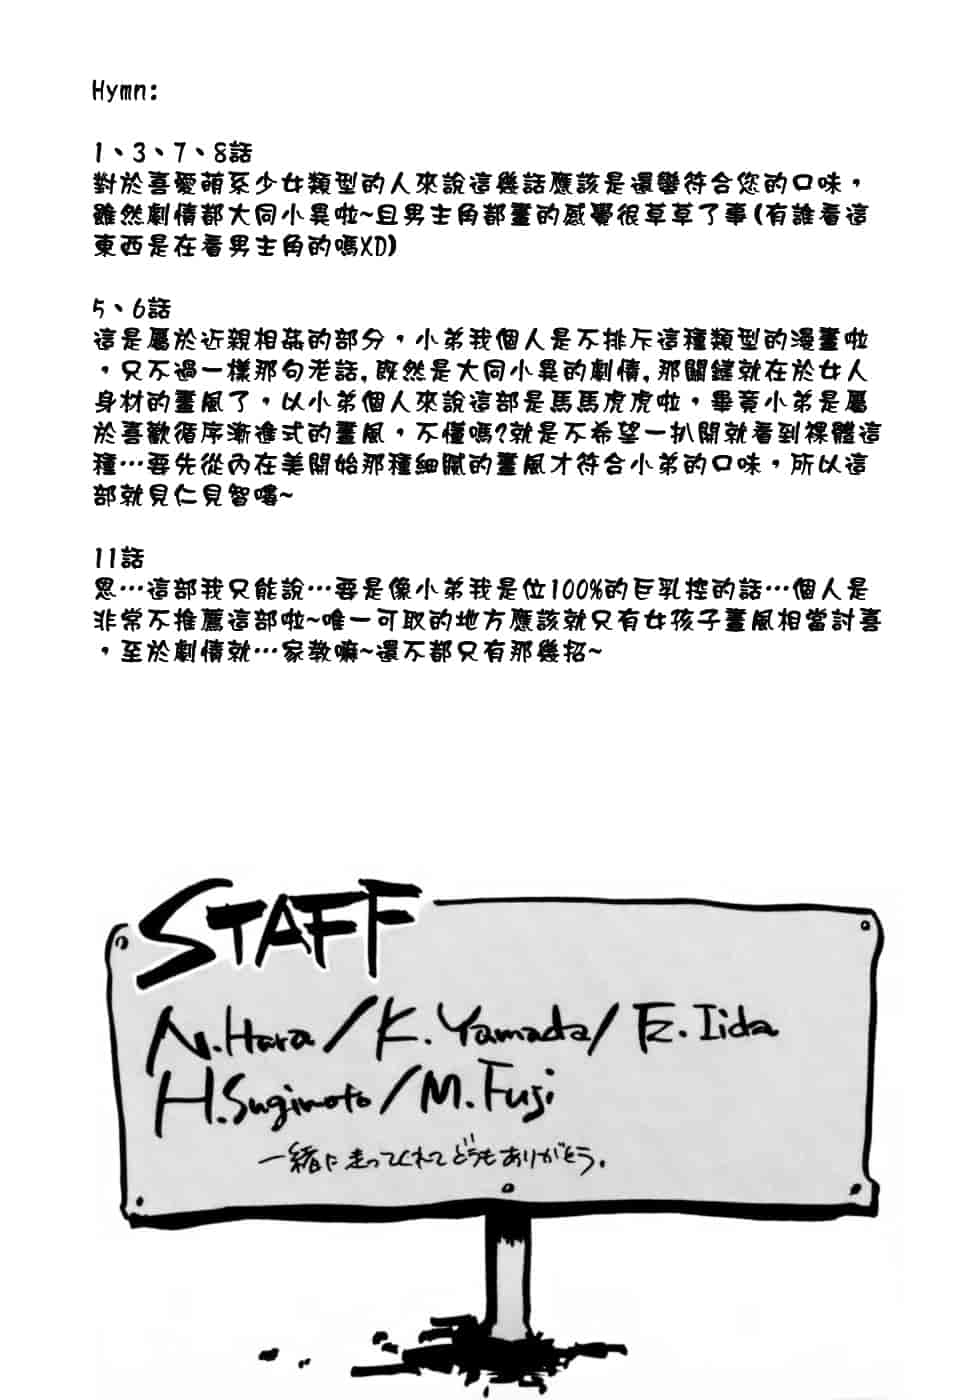 Hymn:
1、3、7、8話
對於喜愛萌系少女類型的人來說這幾話應該是還蠻符合您的口味，
雖然劇情都大同小異啦~且男主角都畫的感覺很草草了事(有誰看這
東西是在看男主角的嗎XD)
5、6話
這是屬於近親相姦的部分，小弟我個人是不排斥這種類型的漫畫啦
，只不過一樣那句老話,既然是大同小異的劇情,那關鍵就在於女人
身材的畫風了，以小弟個人來說這部是馬馬虎虎啦，畢竟小弟是屬
於喜歡循序漸進式的畫風，不懂嗎?就是不希望一扒開就看到裸體這
種…要先從內在美開始那種細膩的畫風才符合小弟的口味，所以這
部就見仁見智嘍~
11話
恩…這部我只能說…要是像小弟我是位100%的巨乳控的話…個人是
非常不推薦這部啦~唯一可取的地方應該就只有女孩子畫風相當討喜
，至於劇情就…家教嘛~還不都只有那幾招~
STAFF
N.Hara/K.Yamada/E.Iida
H.Sugimoto/M.Fuji
一緒に走ってくれてどうもありがとう.